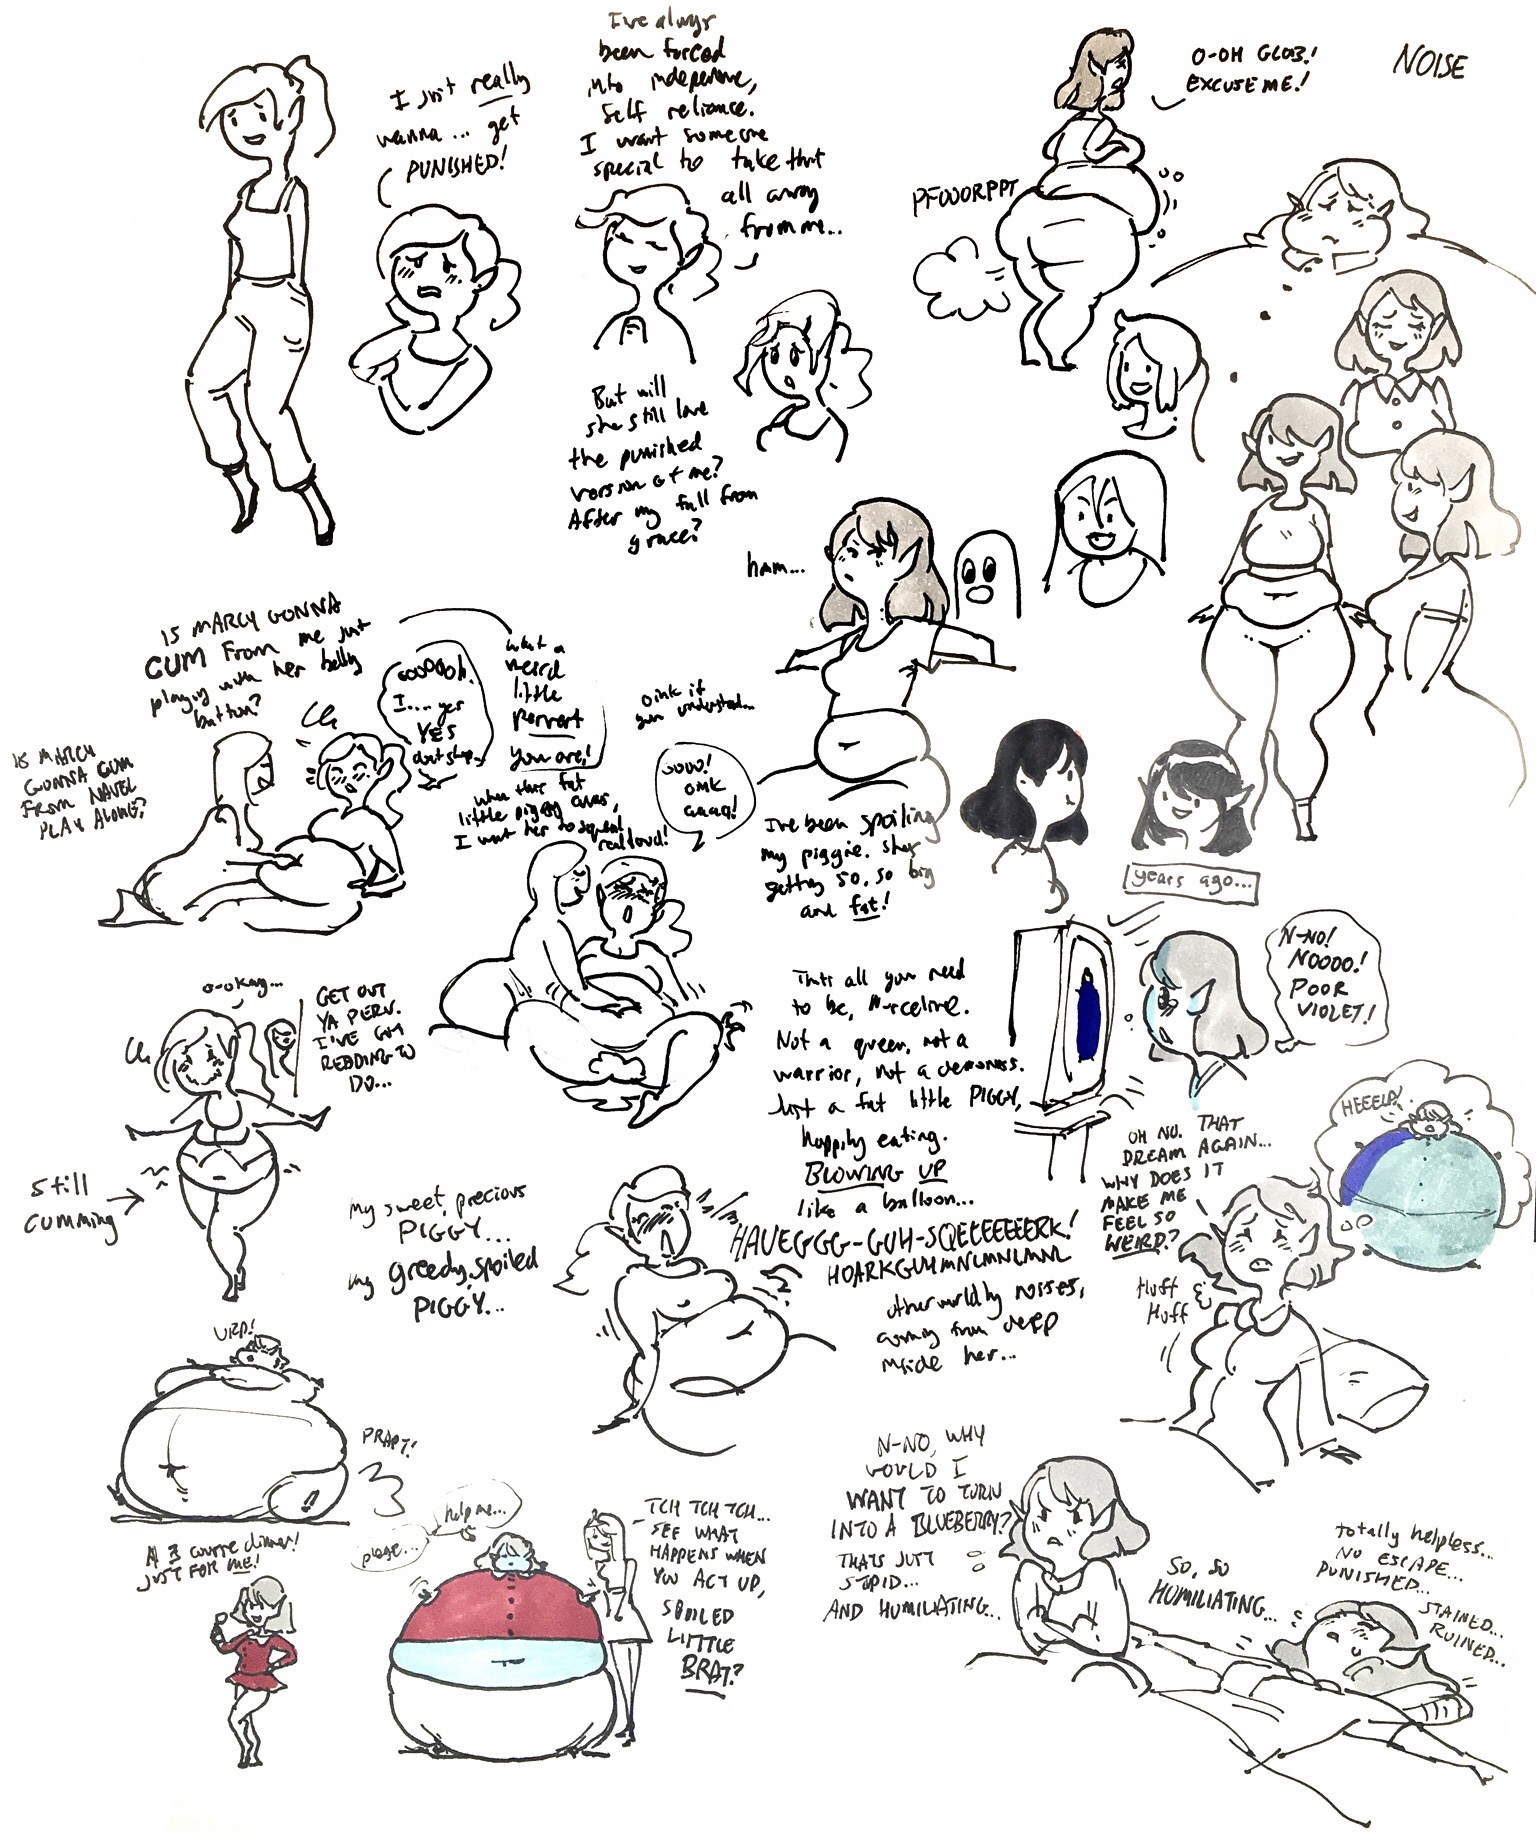 I just really
wanna... get
PUNISHED!
I've always
been forced
into independence,
self reliance.
I want someone
special to take that
all away
from me...
But will
she still love
the punished
version of me?
After my fall from
grace?
O-OH GLOB!
EXCUSE ME!
NOISE
PFOOORPPT
ham...
IS MARCY GONNA
CUM From me just
playing with her belly
button?
IS MARCY
GONNA CUM
FROM NAVEL
PLAY ALONE?
oooooh.
I.... yes
YES
dont stop...
what a
weird
little
pervert
you are!
when this fat
little piggy cums,
I want her to squeal
real loud!
oink if
you understand...
oooo!
OINK
aaaa!
I've been spoiling
my piggie. shes
getting so, so big
and fat!
years ago...
N-NO!
NOOOO!
POOR
VIOLET!
o-okay...
GET OUT
YA PERV.
I'VE GOT
READING TO
DO...
still
cumming
Thats all you need
to be, Marceline.
Not a queen, not a
warrior, not a demoness.
Just a fat little PIGGY,
happily eating.
BLOWING UP
like a balloon...
OH NO. THAT
DREAM AGAIN...
WHY DOES IT
MAKE ME
FEEL SO
WEIRD?
HEEELP!
Huff
Huff
My sweet, precious
PIGGY...
my greedy, spoiled
PIGGY...
HAUEGGG-GUH-SQEEEEEEERK!
HOARKGUHMNLMNLMNL
otherworldly noises,
coming from deep
inside her...
URP!
PRAPT!
A 3 course dinner!
JUST FOR ME!
please...
help me...
TCH TCH TCH...
SEE WHAT
HAPPENS WHEN
YOU ACT UP,
SPOILED
LITTLE
BRAT?
N-NO, WHY
WOULD I
WANT TO TURN
INTO A BLUEBERRY?
THATS JUST
STUPID...
AND HUMILIATING...
SO, SO
HUMILIATING...
totally helpless...
NO ESCAPE...
PUNISHED...
STAINED...
RUINED...